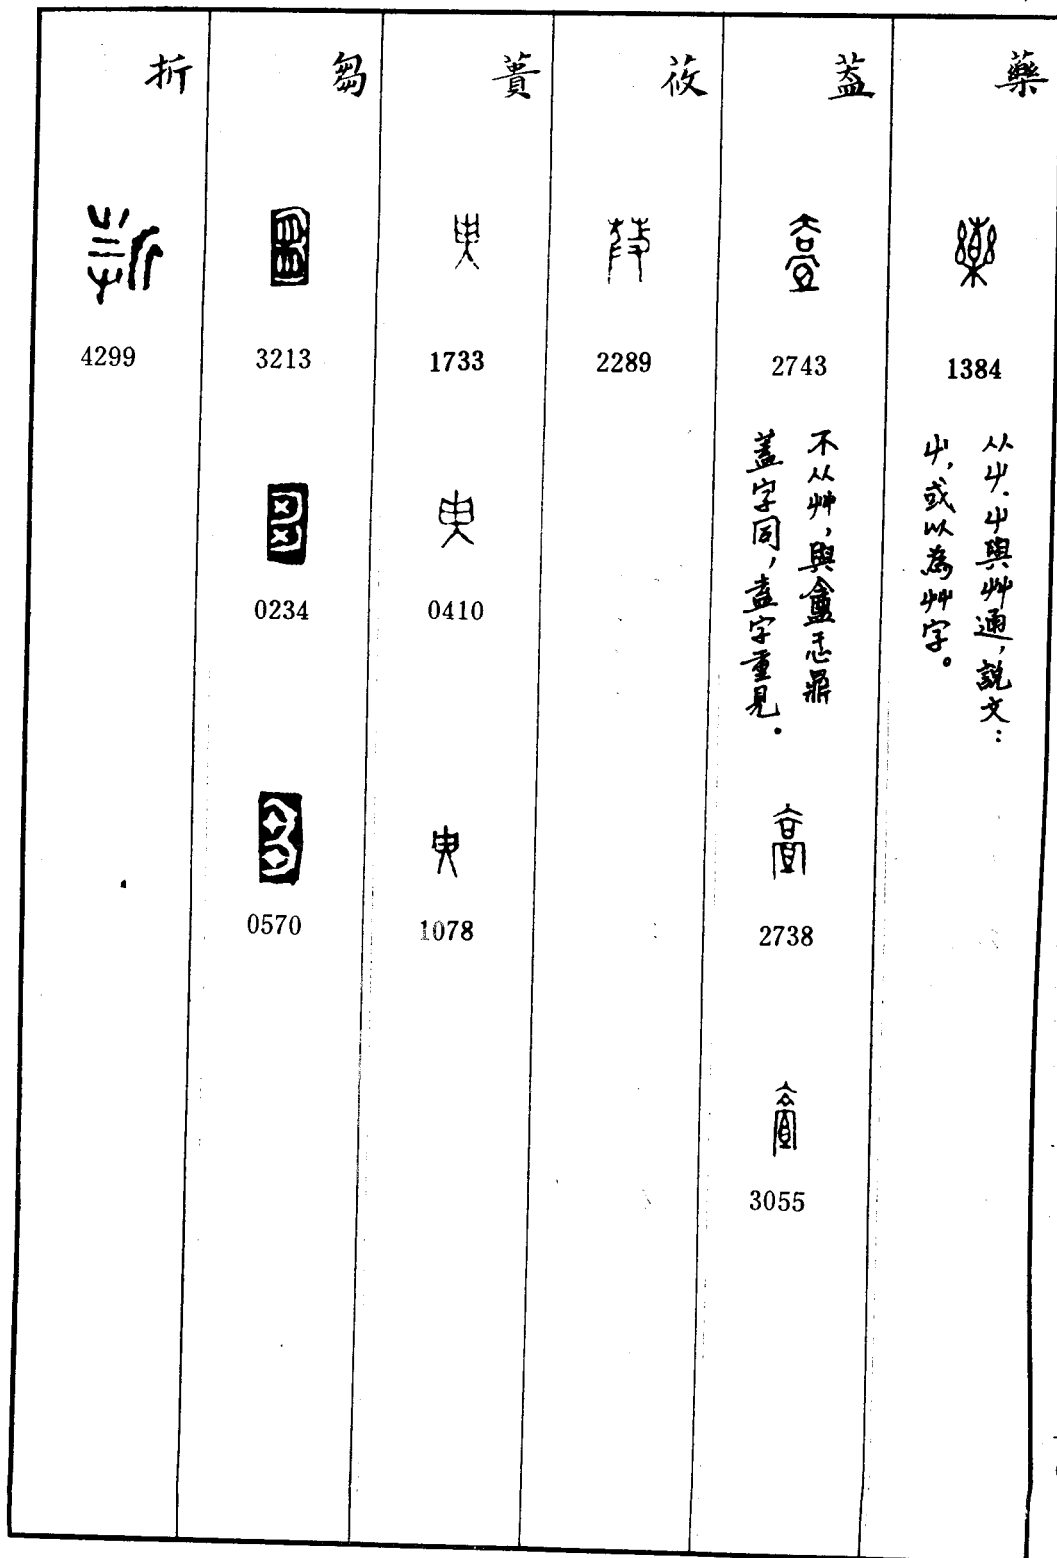 藥
1384
从屮.屮與艸通,說文:
屮,或以為艸字。
葢
2743
不从艸,與盦忎鼎
蓋字同,盍字重見.
2738
3055
莜
2289
蕢
1733
0410
1078
芻
3213
0234
0570
折
4299